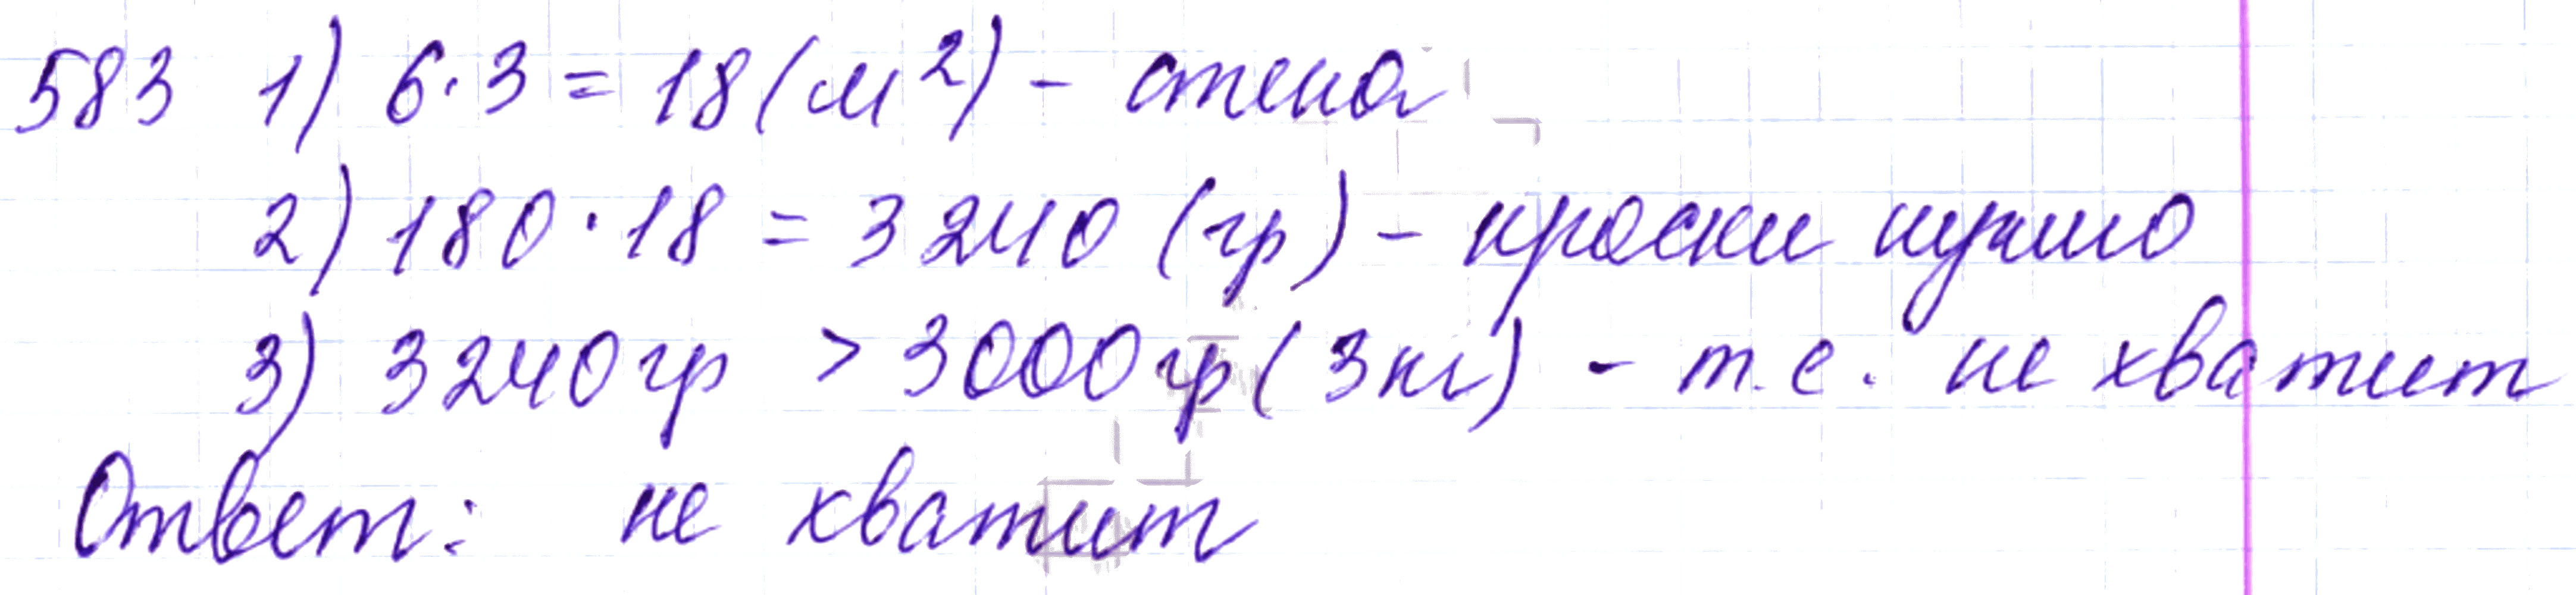 583 1) 6·3 = 18 (м²) - стена
2) 180·18 = 3240 (гр) - краски нужно
3) 3240 гр > 3000 гр (3 кг) - т.е. не хватит
Ответ: не хватит